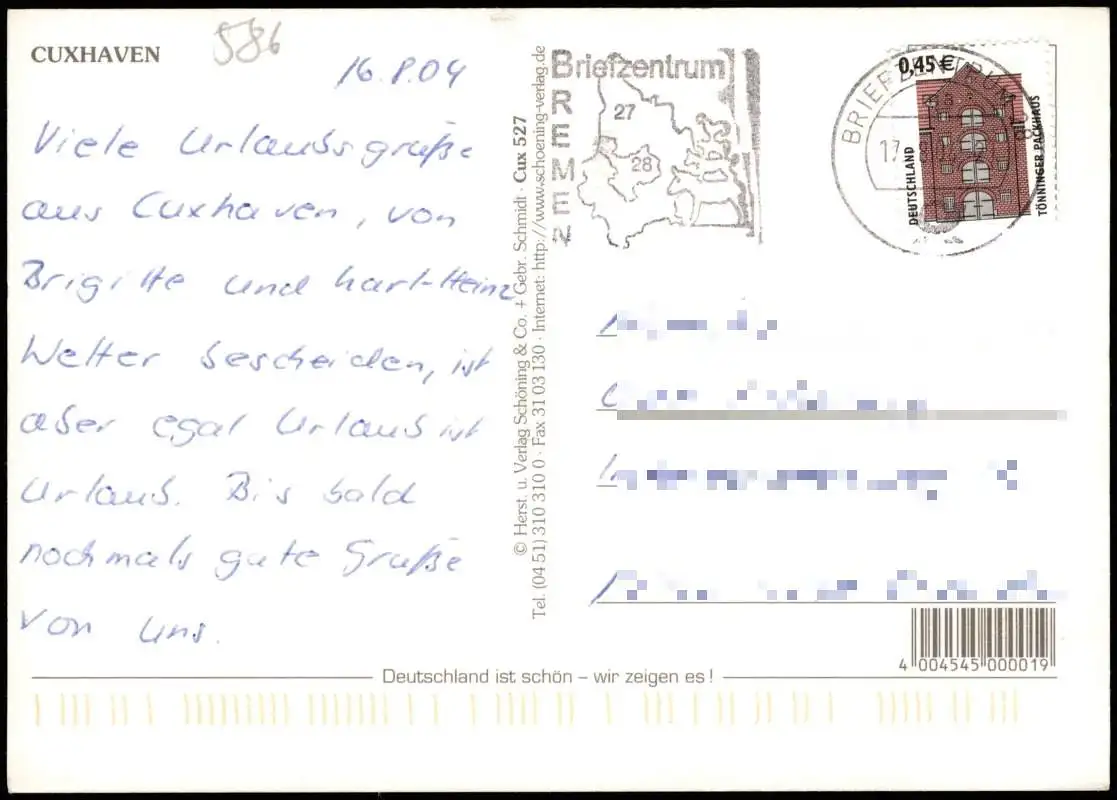 CUXHAVEN
586
16.8.04
Viele Urlaubsgrüße
aus Cuxhaven, von
Brigitte und Karl-Heinz
Wetter bescheiden, ist
aber egal Urlaub ist
Urlaub. Bis bald
nochmals gute Grüße
von uns.
© Herst. u. Verlag Schöning & Co. + Gebr. Schmidt · Cux 527
Tel. (04 51) 310 310 0 · Fax 31 03 130 · Internet: http://www.schoening-verlag.de
Briefzentrum
BREMEN
27
28
BRIEFZENTRUM
17
0,45 €
DEUTSCHLAND
TÖNNINGER PACKHAUS
4 004545 000019
Deutschland ist schön – wir zeigen es !